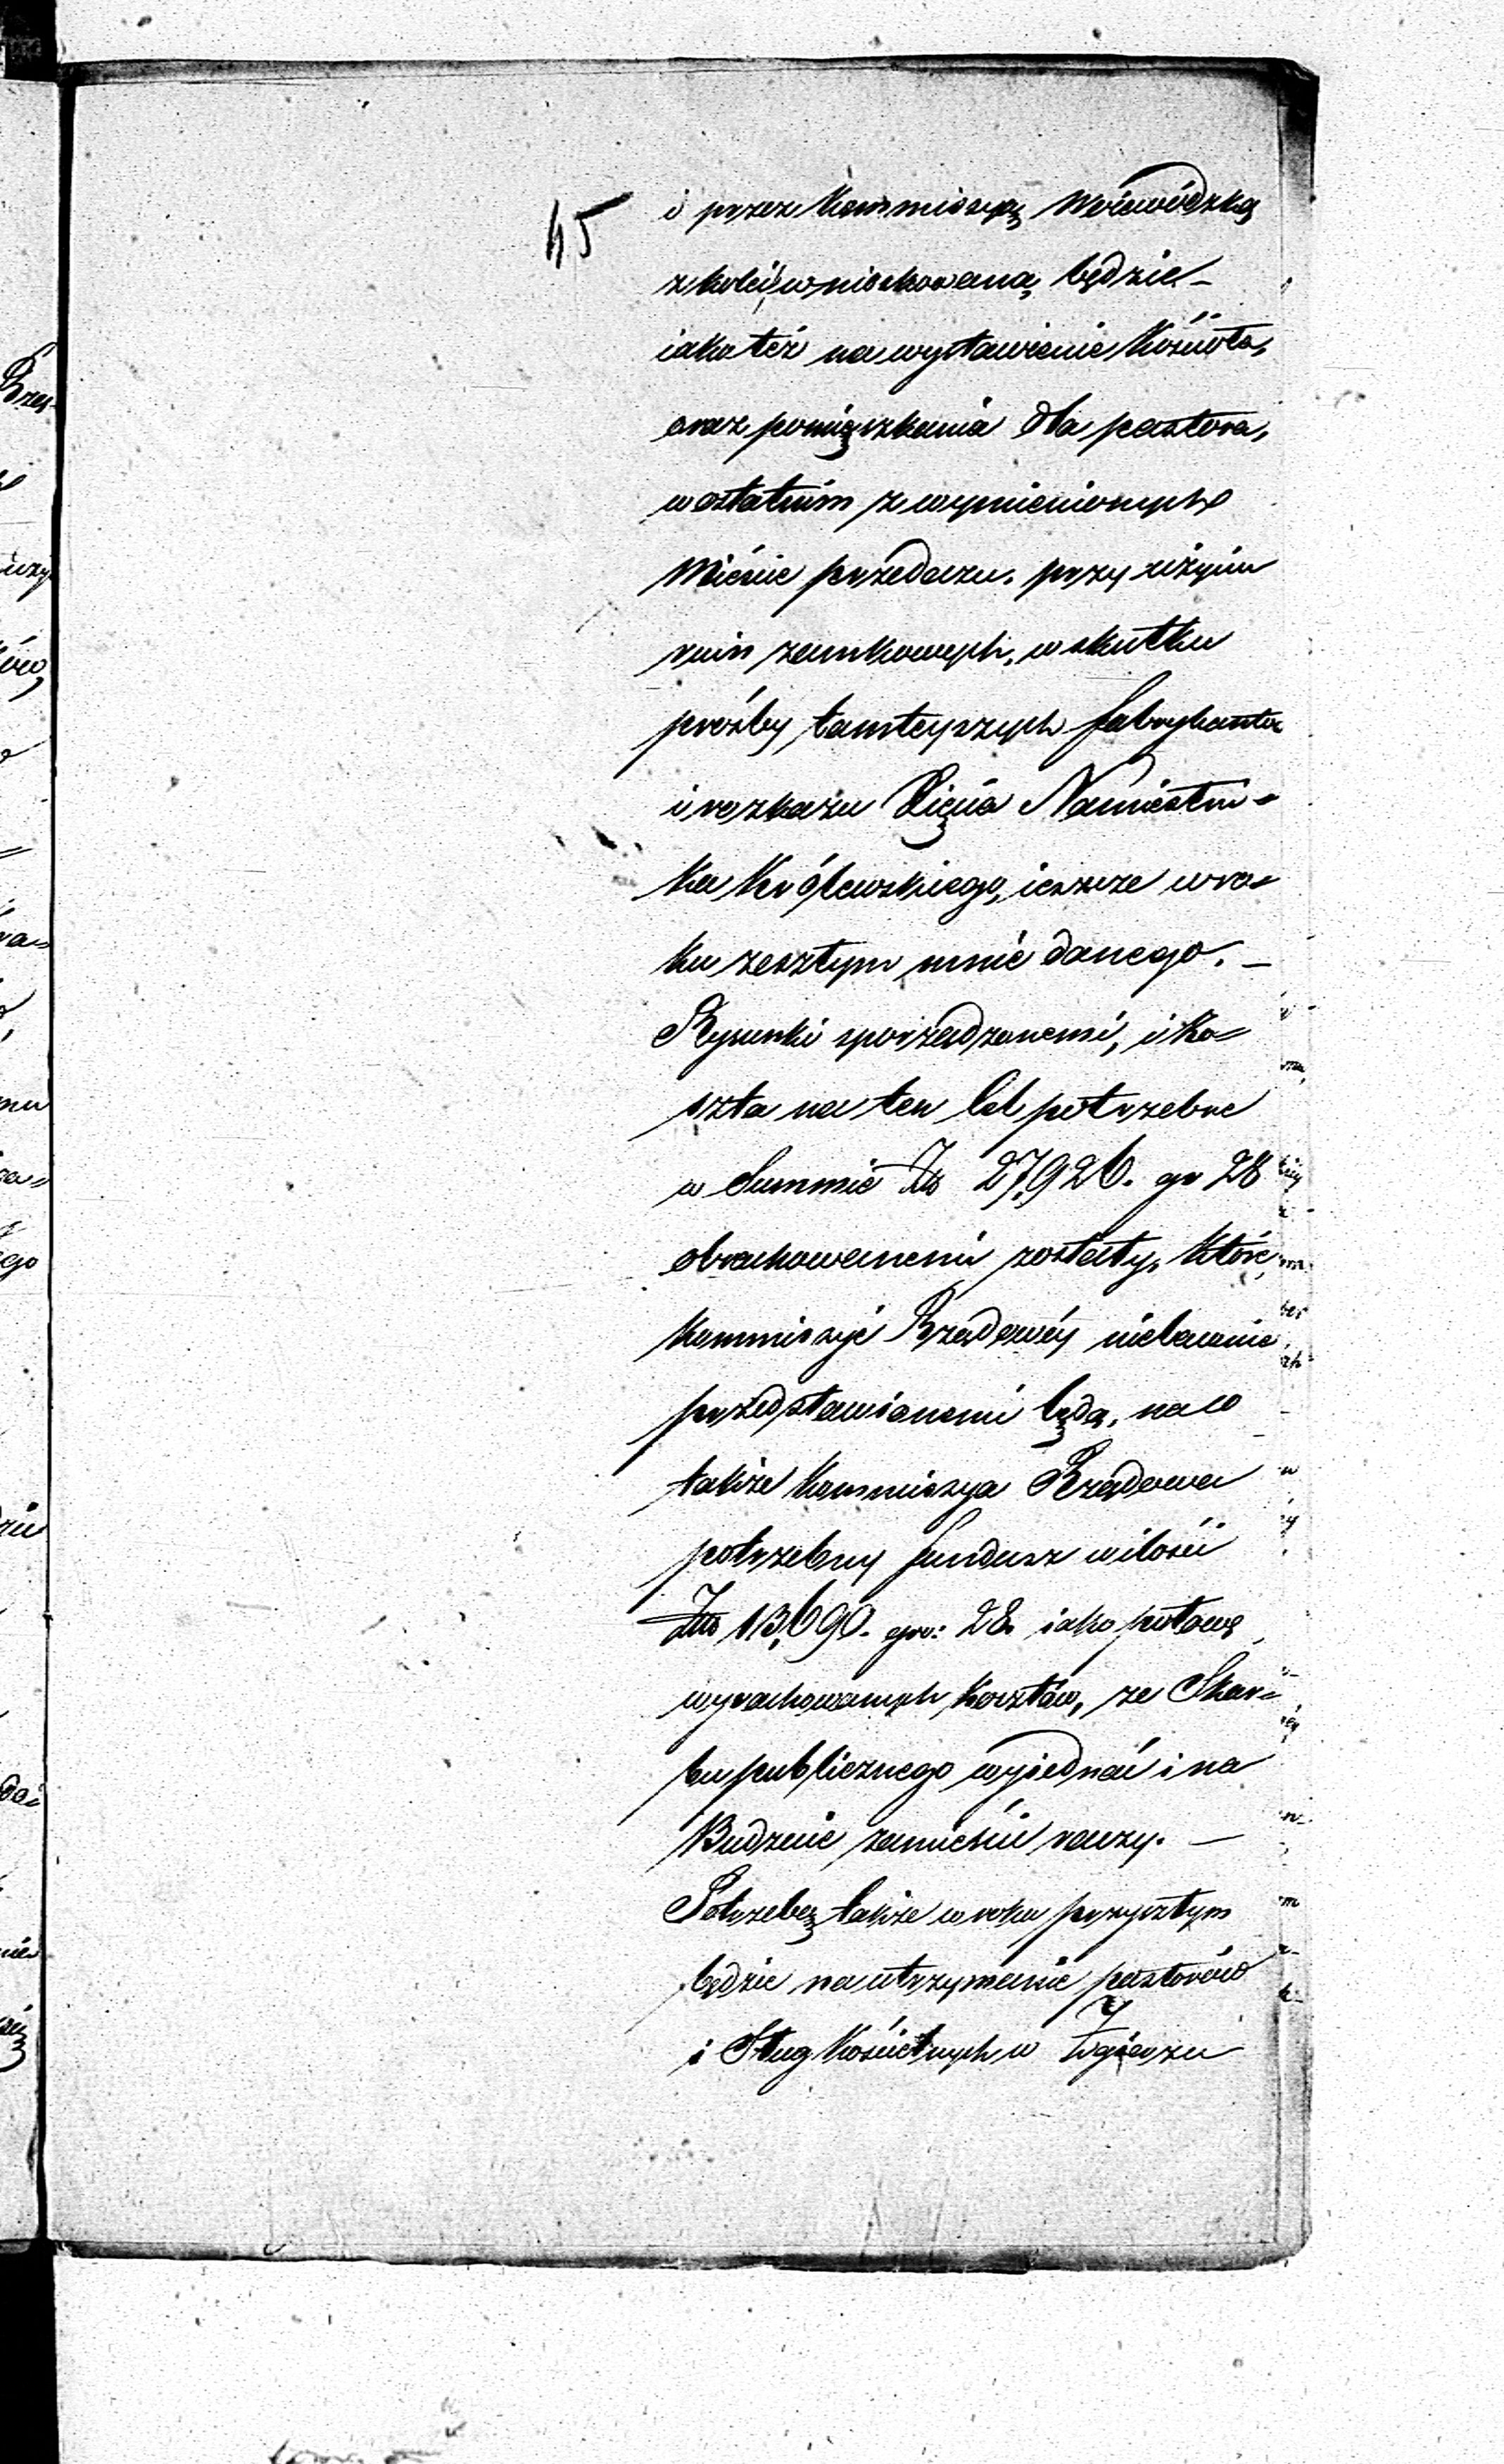 45
i przez Kommissyą Woiewódzką
z kolei wnioskowaną będzie –
iako też na wystawienie Kościoła,
oraz pomięszkania dla pastora,
w ostatnim z wymienionych
Mieście przedarzu. przy użyciu
ruin zamkowych, w skutku
prośby tamteyszych fabrykantów
i rozkazu Xięcia Namiestni=
ka Królewskiego, ieszcze w ro=
ku zeszłym mnie danego. –
Rysunki sporządzonemi, i Ko=
szta na ten Cel potrzebne
w Summie Zło 27,926. gr 28
obrachowanemi zostały, które
Kommissyi Rządowéy niebawnie
przedstawionemi będą, na co
także Kommissya Rządowa
potrzebny fundusz w ilości
Zło 13,690. gr: 28. iako połowę
wyrachowanych kosztów, ze Skar=
bu publicznego wyiednać i na
Budżecie zamieścić raczy. –
Potrzebą także w roku przyszłym
będzie na utrzymanie pastorów
i Sług Kościelnych w Zgierzu